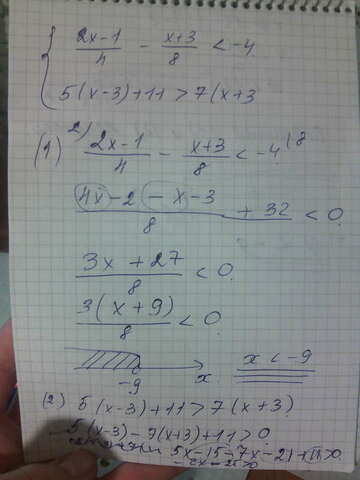 { (2x-1)/4 - (x+3)/8 < -4
5(x-3)+11 > 7(x+3
(1) 2) (2x-1)/4 - (x+3)/8 < -4 |8
(4x-2-x-3 + 32)/8 < 0
(3x+27)/8 < 0
3(x+9)/8 < 0
-9 x x < -9
(2) 5(x-3)+11 > 7(x+3)
5(x-3)-7(x+3)+11 > 0
5x-15-7x-21+11>0
-2x-25>0